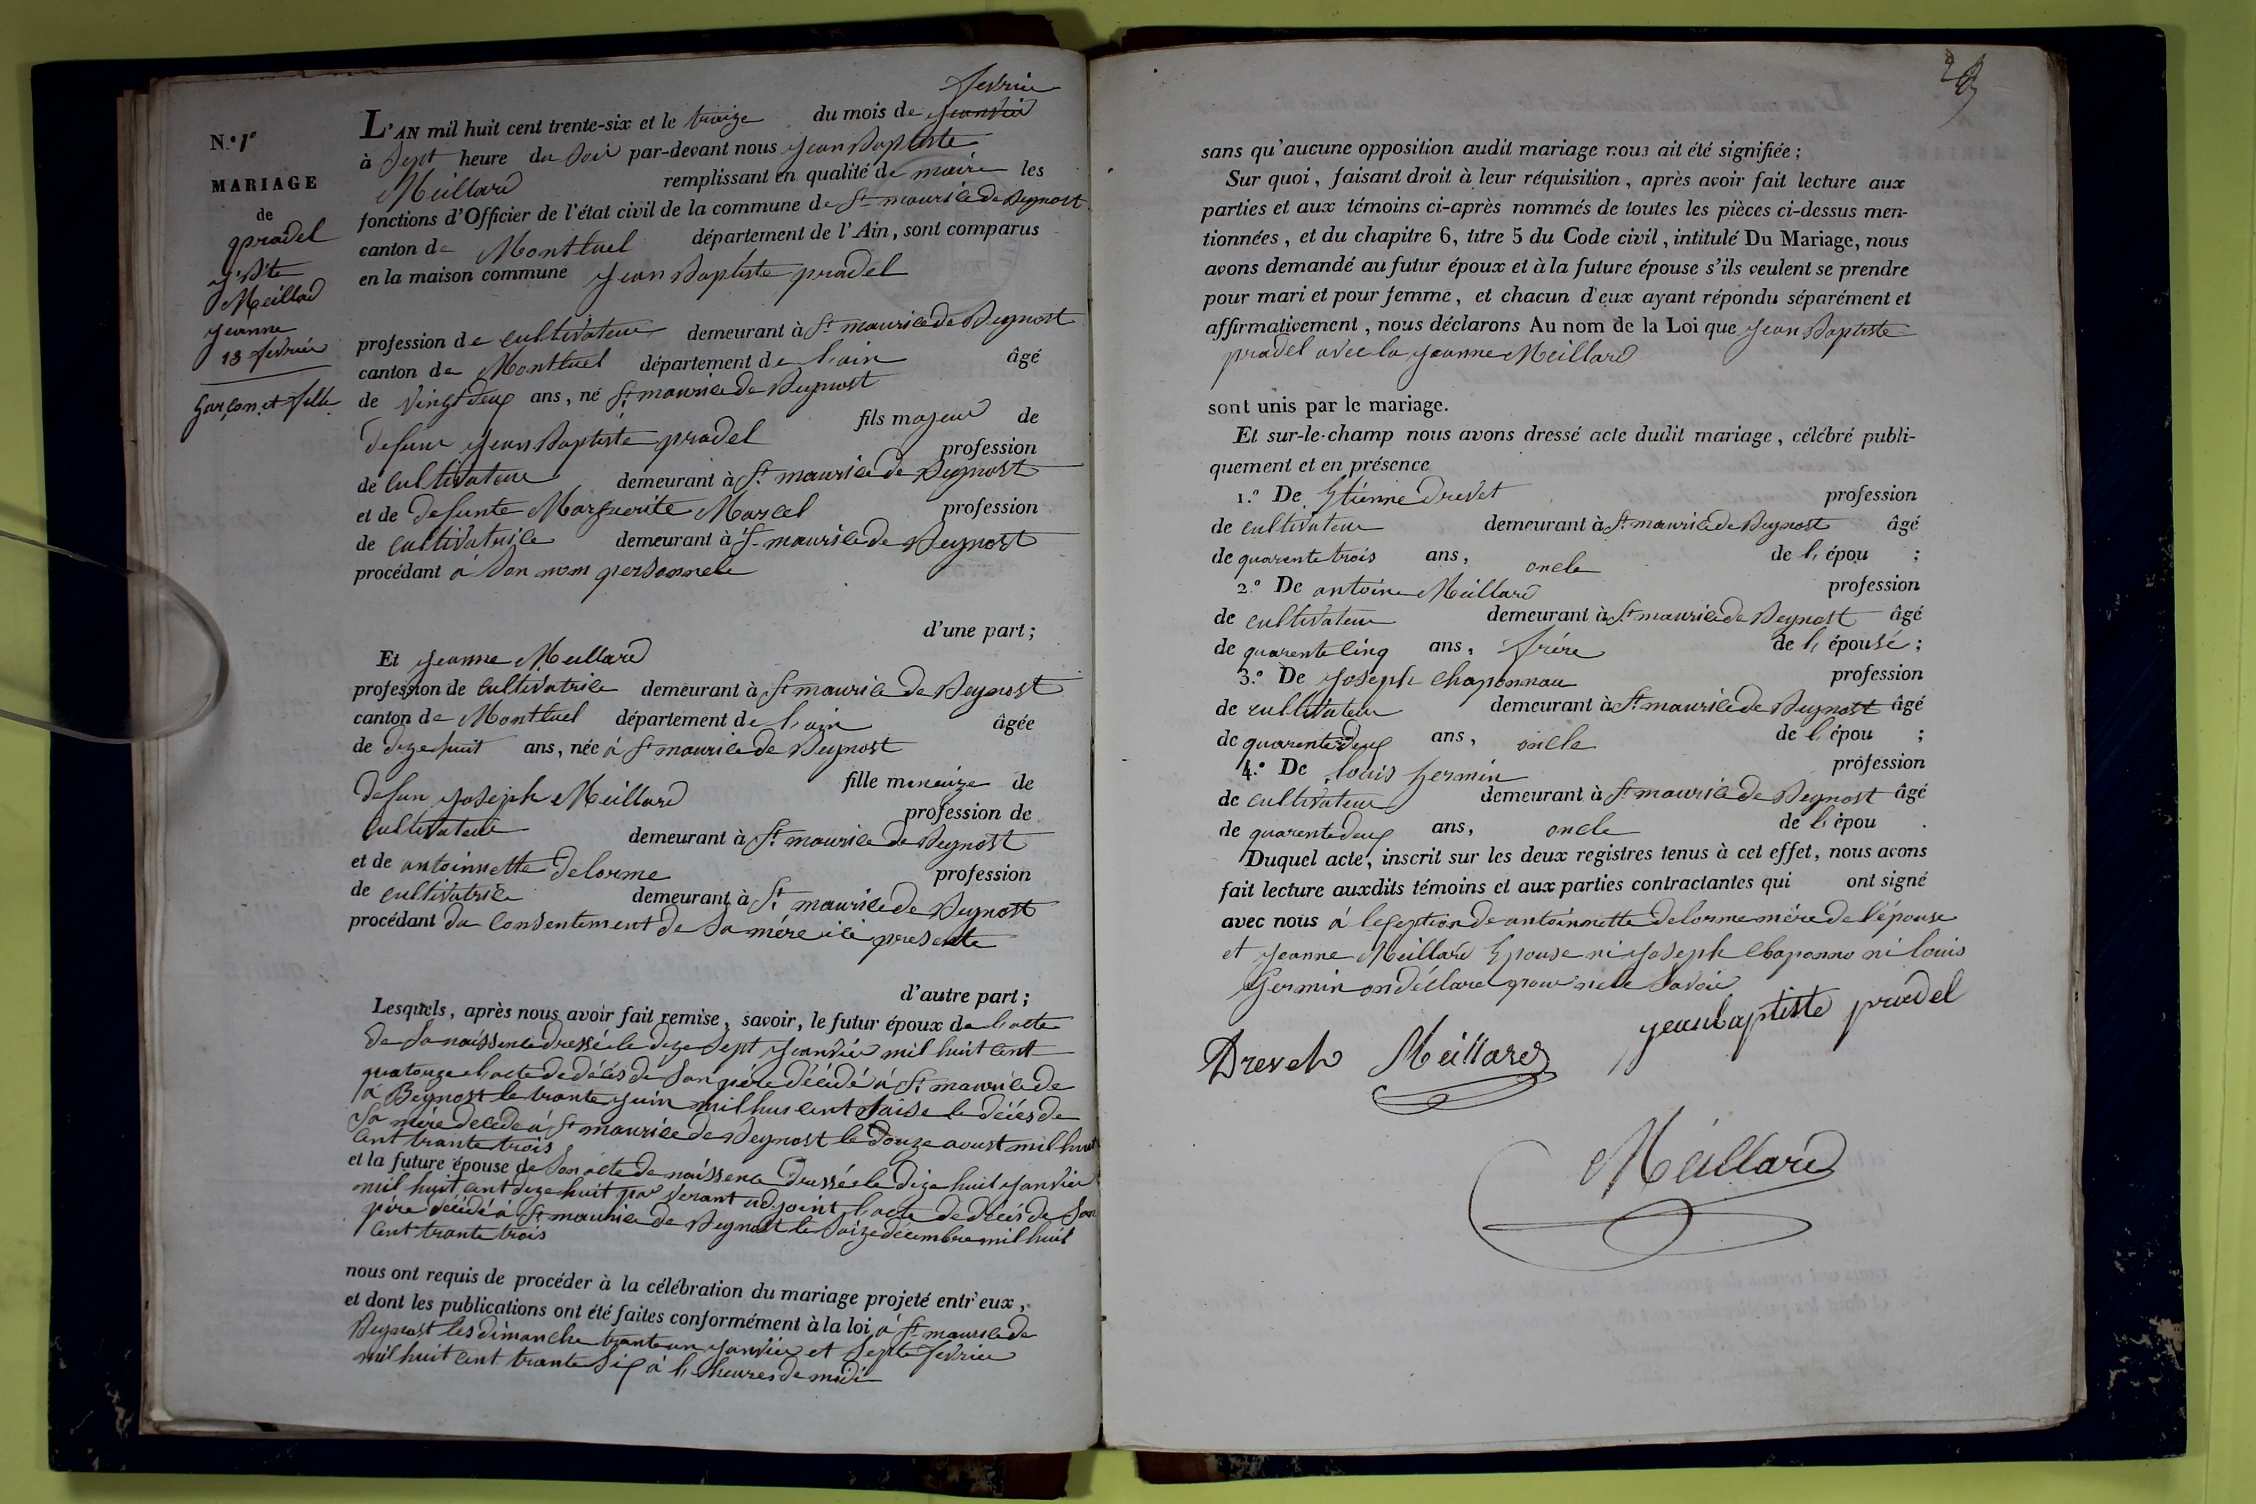 N.° 1er
MARIAGE
de
pradel
J. Bte
Meillard
Jeanne
13 fevrier
Garçon et fille
fevrier
L'AN mil huit cent trente-six et le treize du mois de Janvier
à Sept heure du Soir par-devant nous Jean Baptiste
Meillard remplissant en qualité de maire les
fonctions d'Officier de l'état civil de la commune de St maurice de Beynost
canton de Montluel département de l'Ain, sont comparus
en la maison commune Jean Baptiste pradel
profession de cultivateur demeurant à St maurice de Beynost
canton de Montluel département de l'ain âgé
de vingt deux ans, né St maurice de Beynost
fils majeur de
defunt Jean Baptiste pradel profession
de cultivateur demeurant à St maurice de Beynost
et de defunte Marguerite Marcel profession
de cultivatrice demeurant à St maurice de Beynost
procédant à Son nom personnele
d'une part;
Et Jeanne Meillard
profession de cultivatrice demeurant à St maurice de Beynost
canton de Montluel département de l'ain âgée
de dize huit ans, née à St maurice de Beynost
fille meneuze de
defun Joseph Meillard profession de
cultivateur demeurant à St maurice de Beynost
et de antoinette delorme profession
de cultivatrice demeurant à St maurice de Beynost
procédant du Consentement de Sa mére ici presente
d'autre part;
Lesquels, après nous avoir fait remise, savoir, le futur époux de l'acte
de Sa naissence dressé le dize Sept Janvier mil huit cent
quatouze l'acte de décés de Son pére décédé à St maurice de
à Beynost le trante Juin mil hui cent Saise le décés de
Sa mére decede à St maurice de Beynost le douze aoust mil huit
cent trante trois
et la future épouse de Son acte de naissence Dressé le dize huit Janvier
mil huit cent dize huit par verant adjoint l'acte de décés de Son
pére décédé à St maurice de Beynost le Saize décembre mil huit
cent trante trois
nous ont requis de procéder à la célébration du mariage projeté entr'eux,
et dont les publications ont été faites conformément à la loi à St maurice de
Beynost les dimanche trante un Janvier et Septe fevrier
mil huit cent trante Six à l'heures de midi
sans qu'aucune opposition audit mariage nous ait été signifiée;
Sur quoi, faisant droit à leur réquisition, après avoir fait lecture aux
parties et aux témoins ci-après nommés de toutes les pièces ci-dessus men-
tionnées, et du chapitre 6, titre 5 du Code civil, intitulé Du Mariage, nous
avons demandé au futur époux et à la future épouse s'ils veulent se prendre
pour mari et pour femme, et chacun d'eux ayant répondu séparément et
affirmativement, nous déclarons Au nom de la Loi que Jean Baptiste
pradel avec la Jeanne Meillard
sont unis par le mariage.
Et sur-le-champ nous avons dressé acte dudit mariage, célébré publi-
quement et en présence
1.° De Etienne Drevet profession
de cultivateur demeurant à St maurice de Beynost âgé
de quarente trois ans, oncle de l'épou ;
2.° De antoine Meillard profession
de cultivateur demeurant à St maurice de Beynost âgé
de quarente cinq ans, frére de l'épouse;
3.° De Joseph Chaponnau profession
de cultivateur demeurant à St maurice de Beynost âgé
de quarente deux ans, oncle de l'épou ;
4.° De Louis Germin profession
de cultivateur demeurant à St maurice de Beynost âgé
de quarente deux ans, oncle de l'épou .
Duquel acte, inscrit sur les deux registres tenus à cet effet, nous avons
fait lecture auxdits témoins et aux parties contractantes qui ont signé
avec nous à lexeption de antoinnette delorme mére de l'épouse
et Jeanne Meillard Epouse ni Joseph Chaponno ni louis
Germin on déclaré pour ne le Savoir
Jeanbaptiste pradel
Drevet Meillard
Meillard